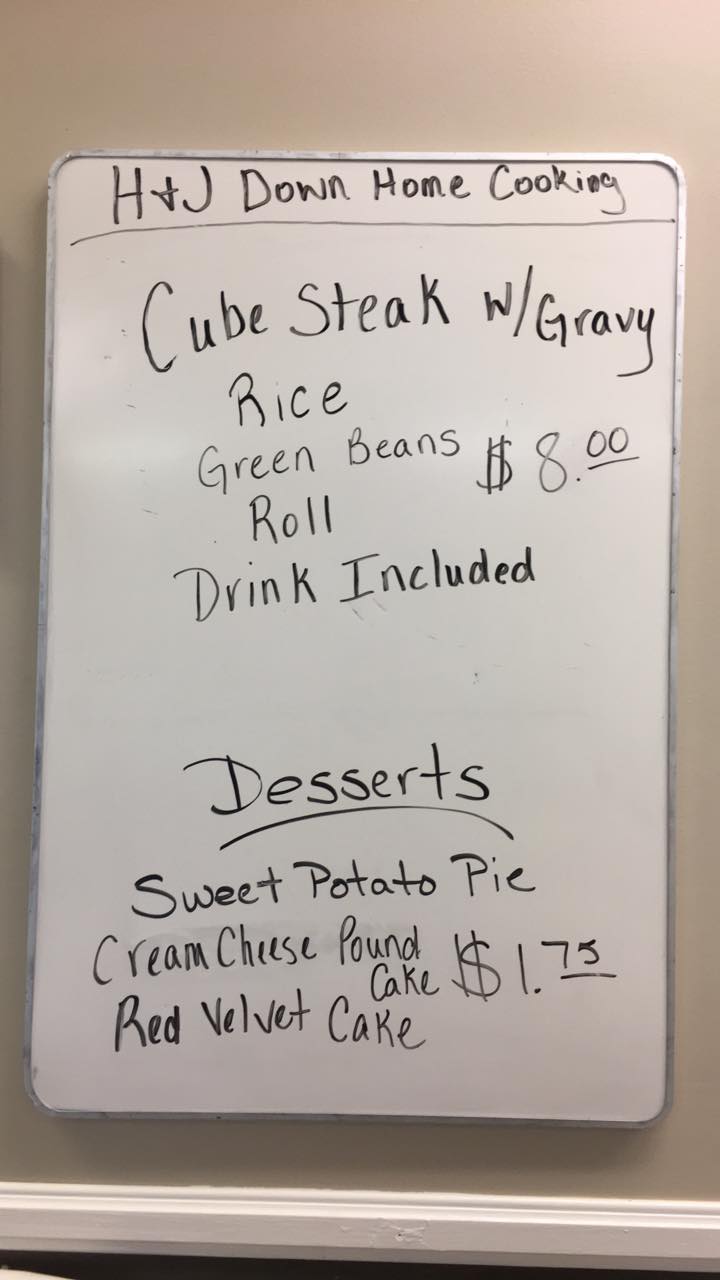 H+J Down Home Cooking
Cube Steak w/Gravy
Rice
Green Beans $8.00
Roll
Drink Included
Desserts
Sweet Potato Pie
Cream Cheese Pound
Cake $1.75
Red Velvet Cake